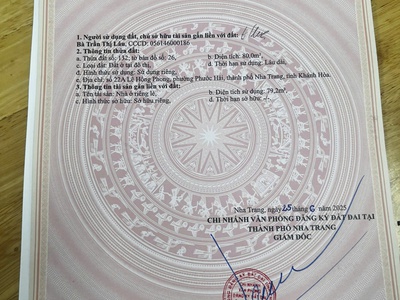 1. Người sử dụng đất, chủ sở hữu tài sản gắn liền với đất:
Bà Trần Thị Lầu, CCCD: 056146000186
2. Thông tin thửa đất:
a. Thửa đất số: 132; tờ bản đồ số: 26, b. Diện tích: 80,0m².
c. Loại đất: Đất ở tại đô thị, d. Thời hạn sử dụng: Lâu dài,
đ. Hình thức sử dụng: Sử dụng riêng,
e. Địa chỉ: số 22A Lê Hồng Phong, phường Phước Hải, thành phố Nha Trang, tỉnh Khánh Hòa.
3. Thông tin tài sản gắn liền với đất:
a. Tên tài sản: Nhà ở riêng lẻ, b. Diện tích sử dụng: 79,2m².
c. Hình thức sở hữu: Sở hữu riêng, d. Thời hạn sở hữu: -/-.
Nha Trang, ngày 25 tháng 6 năm 2025
CHI NHÁNH VĂN PHÒNG ĐĂNG KÝ ĐẤT ĐAI TẠI
THÀNH PHỐ NHA TRANG
GIÁM ĐỐC